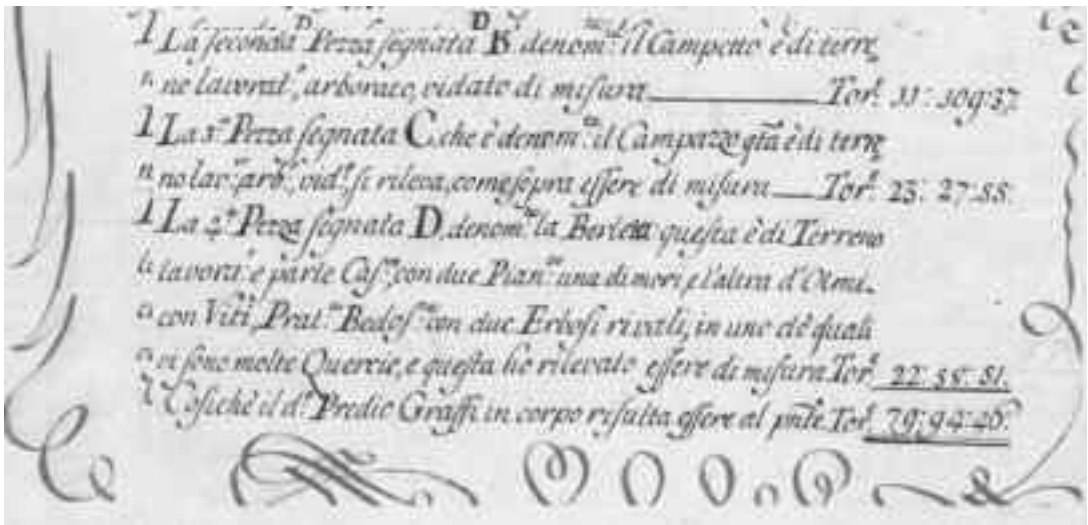 La seconda Pezza segnata B denom.ta il Campetto è di terre
ne lavorat.o, arborato, vidato di misura Tor.e 11: 109:37.
La 3.a Pezza segnata C. che è denom.ta il Campazzo q̃ta è di terre
no lav.o arb.o vid.o si rileva, come sopra essere di misura Tor.e 23: 27:55.
La 4.a Pezza segnata D. denom.ta la Berleta questa è di Terreno
lavora.o e parte Cas.vo con due Pian.re una di mori e l'altra d'Olmi
con Viti, Prat.va Bedos.va con due Erbosi rivali, in uno de quali
vi sono molte Quercie, e questa ho rilevato essere di misura Tor.e 22: 55: 81.
Cosichè il d.o Predio Graffi in corpo risulta essere al pñte Tor.e 79: 94: 46.